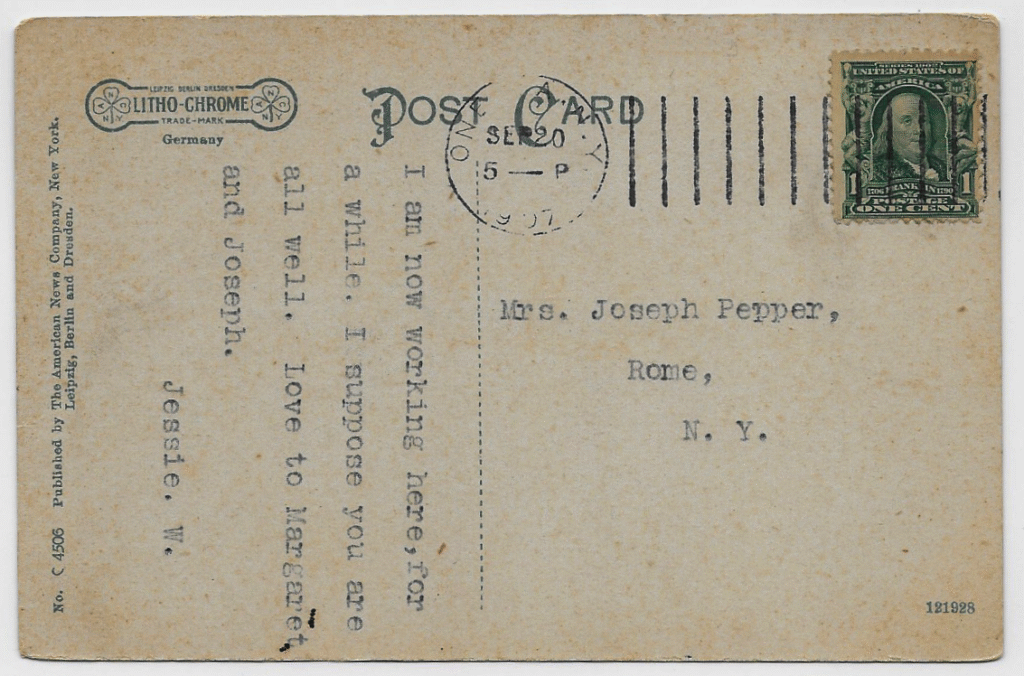 LEIPZIG BERLIN DRESDEN
LITHO-CHROME
TRADE-MARK
Germany
POST CARD
SEP 20
5 — P
1907
SERIES 1902
UNITED STATES OF
AMERICA
1706 FRANKLIN 1790
1 POSTAGE 1
ONE CENT
I am now working here, for
a while. I suppose you are
all well. Love to Margaret
and Joseph.
Jessie. W.
Mrs. Joseph Pepper,
Rome,
N. Y.
No. C 4506 Published by The American News Company, New York.
Leipzig, Berlin and Dresden.
121928